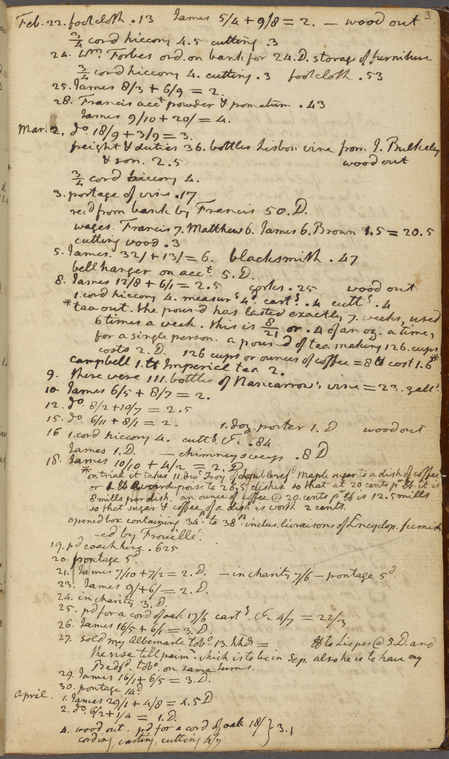 3.
Feb. 22. footcloth .13 James 5/4 + 9/8 = 2. — wood out
3/4 cord hiccory 4.5 cutting .3
24. Wm. Forbes ord. on bank for 24.D. storage of furniture
3/4 cord hiccory 4. cutting .3 footcloth .53
25. James 8/3 + 6/9 = 2.
28. Francis acct. powder & pomatum .43
James 9/10 + 20/ = 4.
Mar. 2. do. 18/9 + 3/9 = 3.
freight & duties 36. bottles Lisbon wine from J. Bulkeley
& son. 2.5 wood out
3/4 cord hiccory 4.
3. portage of wine .17
recd. from bank by Francis 50.D.
wages. Francis 7. Matthew 6. James 6. Brown 1.5 = 20.5
cutting wood .3
5. James. 32/ + 13/ = 6. blacksmith .47
bellhanger on acct. 5.D.
8. James 12/8 + 6/1 = 2.5 corks .25 wood out
1. cord hiccory 4. measurg. cartg. .4 cuttg. .4
* tea out. the pound has lasted exactly 7. weeks, used
6 times a week. this is 8/21 or .4 of an oz. a time,
for a single person. a pound of tea making 126. cups
costs 2.D. 126 cups or ounces of coffee = 8 lb cost 1.6 *
campbell 1. lb Imperial tea 2.
9. there were 111. bottles of Nancarrow's wine = 22. galls.
10. James 6/5 + 8/7 = 2.
12. do. 8/2 + 10/7 = 2.5
15. do. 6/11 + 8/1 = 2. 1. doz. porter 1.D wood out
16 1. cord hiccory 4. cuttg. &c. .84
James 1.D. — chimney sweeps .8 D
18. James 10/10 + 4/2 = 2.D.
* on trial it takes 11. dwt. Troy of double refd. Maple sugar to a dish of coffee
1. lb avoirdupoise to 26.5 dishes so that at 20 cents pr. lb it is
8 mills per dish. an ounce of coffee @ 20. cents pr. lb is 12.5 mills
so that sugar & coffee of a dish is worth 2 cents.
opened box containing 34th. to 38th. inclus. livraisons of Encyclop. furnish
-ed by Froullé.
19. pd coach hire .625
20. pontage 5d
21. James 7/10 + 7/2 = 2.D. — in charity 7/6 — pontage 5d
23. James 9/ + 6/ = 2.D.
24. in charity 3.D.
25. pd for a cord of oak 17/6 cartg. &c. 4/7 = 22/3
26. James 16/5 + 6/1 = 3.D.
27. sold my Albemarle tobo. 13. hhds = to Lieper @ 5.D. and
the rise till paim. which is to be in Sep. also he is to have my
Bedfd. tobo. on same terms.
29. James 16/1 + 6/5 = 3.D.
30. pontage 14d
April. 1. James 29/1 + 4/8 = 4.5D
2. do. 6/2 + 1/4 = 1.D.
4. wood out. pd for a cord of oak 18/ } 3.1
cording, carting, cutting 4/7